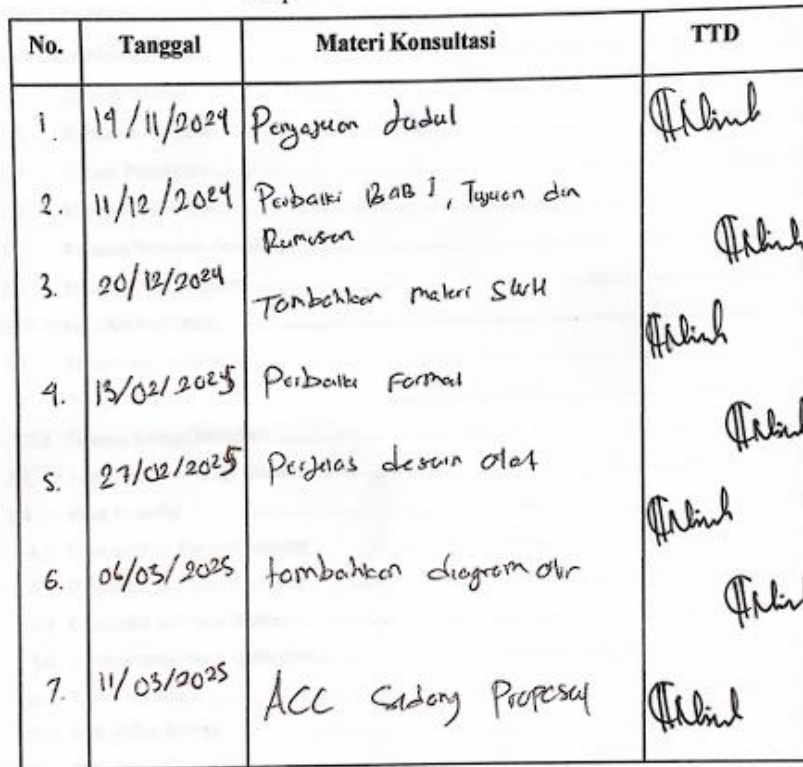 No. Tanggal Materi Konsultasi TTD
1. 19/11/2024 Pengajuan Judul
2. 11/12/2024 Perbaiki BAB I, Tujuan dan
Rumusan
3. 20/12/2024 Tambahkan materi SWH
4. 13/02/2025 Perbaiki Format
5. 27/02/2025 Perjelas desain alat
6. 06/03/2025 tambahkan diagram alir
7. 11/03/2025 ACC Sidang Proposal